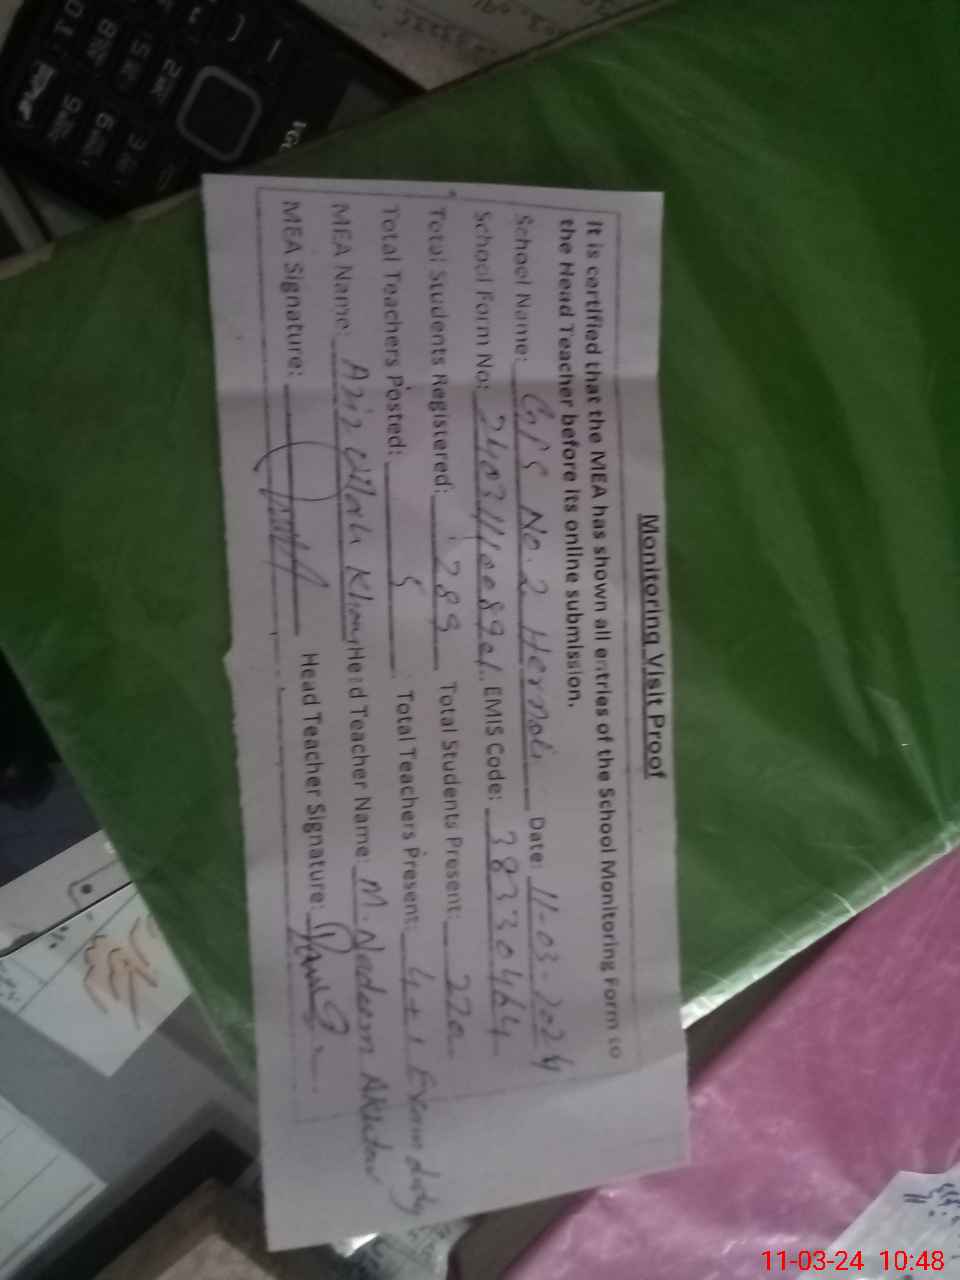 Monitoring Visit Proof
It is certified that the MEA has shown all entries of the School Monitoring Form to
the Head Teacher before its online submission.
School Name: No.2 Date: 11-03-2024
School Form No: EMIS Code: 38330464
Total Students Registered: 289 Total Students Present: 220
Total Teachers Posted: 5 Total Teachers Present: 4+1 Exam duty
MEA Name: Aziz Ullah Khan Head Teacher Name: M. Nadeem Akhtar
MEA Signature: Head Teacher Signature:
11-03-24 10:48